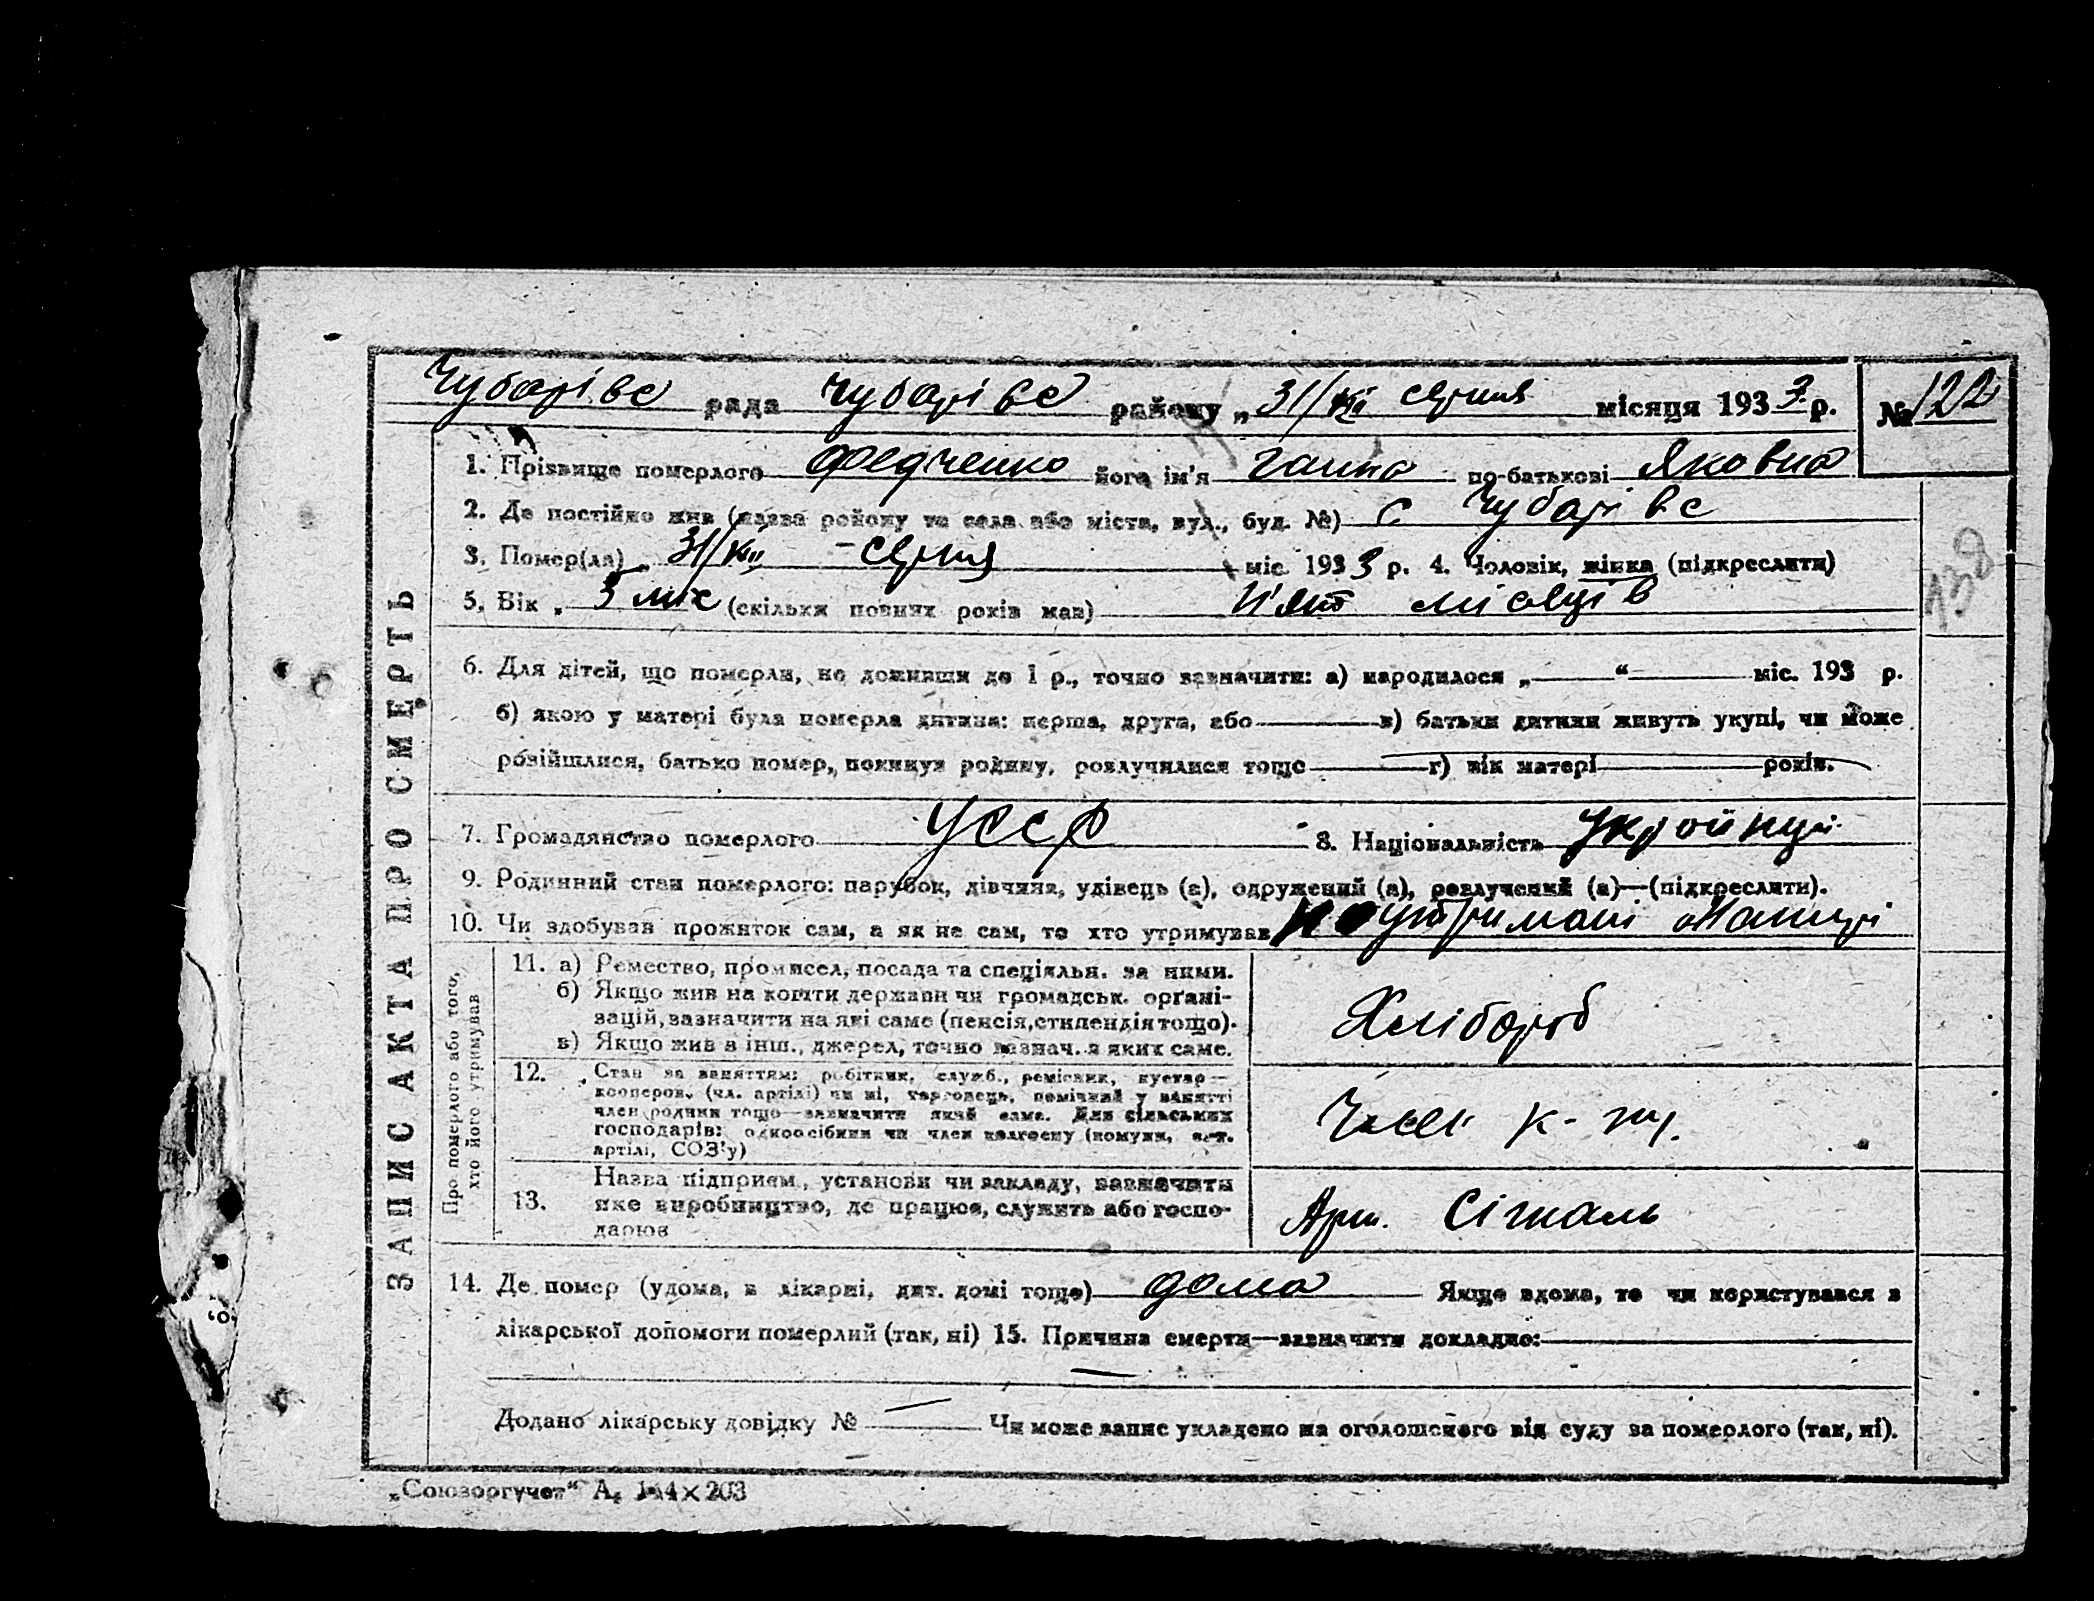 Чубарівс рада Чубарівс району „31/VIII серпня місяця 1933 р. № 122
1. Прізвище померлого Федченко його ім'я Ганна по-батькові Яковна
2. Де постійно жив (назва району та села або міста, вул., буд. №) с Чубарівс
3. Помер(ла) „31/VIII – серпня міс. 1933 р. 4. Чоловік, жінка (підкреслити)
5. Вік „ 5 міс (скільки повних років мав) п'ять місяців
138
6. Для дітей, що померли, не доживши до 1 р., точно зазначити: а) народилося „ “ міс. 193 р.
б) якою у матері була померла дитина: перша, друга, або в) батьки дитини живуть укупі, чи може
розійшлися, батько помер, покинув родину, розлучилися тощо г) вік матері років.
7. Громадянство померлого УССР 8. Національність
9. Родинний стан померлого: парубок, дівчина, удівець (а), одружений (а), розлучений (а)—(підкреслити).
10. Чи здобував прожиток сам, а як не сам, то хто утримував на утриманні
ЗАПИС АКТА ПРО СМЕРТЬ
Про померлого або того,
хто його утримував
11. а) Ремество, промисел, посада та спеціяльн. за ними.
б) Якщо жив на кошти держави чи громадськ. органі-
зацій, зазначити на які саме (пенсія, стипендія тощо).
в) Якщо жив з інш., джерел, точно зазнач. з яких саме.
Хлібороб
12. Стан за заняттям: робітник, служб., ремісник, кустар—
кооперов. (чл. артілі) чи ні, торговець, помічний у занятті
член родини тощо—зазначити який саме. Для сільських
господарів: одноосібник чи член колгоспу (комуни, с.-г.
артілі, СОЗ'у)
Член к-гу.
13. Назва підприєм., установи чи закладу, зазначити
яке виробництво, де працює, служить або госпо-
дарює
Арт. Сігналь
14. Де помер (удома, в лікарні, дит. домі тощо) дома Якщо вдома, то чи користувався з
лікарської допомоги померлий (так, ні) 15. Причина смерти—зазначити докладно:
—
Додано лікарську довідку № — Чи може запис укладено на оголошеного від суду за померлого (так, ні).
„Союзоргучет“ А₅ 144×203